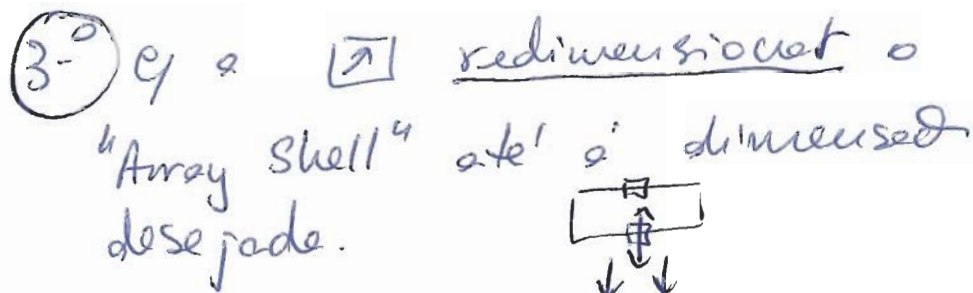 3-º c/ a redimensionar o
"Array Shell" até à dimensão
desejada.